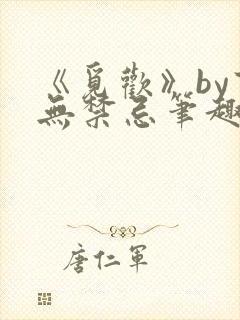 《覓歡》by
無禁忌筆趣
唐仁軍